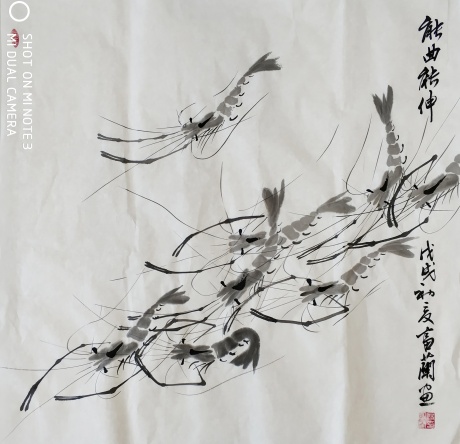 能曲能伸
戊戌初夏富蘭画
SHOT ON MI NOTE 3
MI DUAL CAMERA